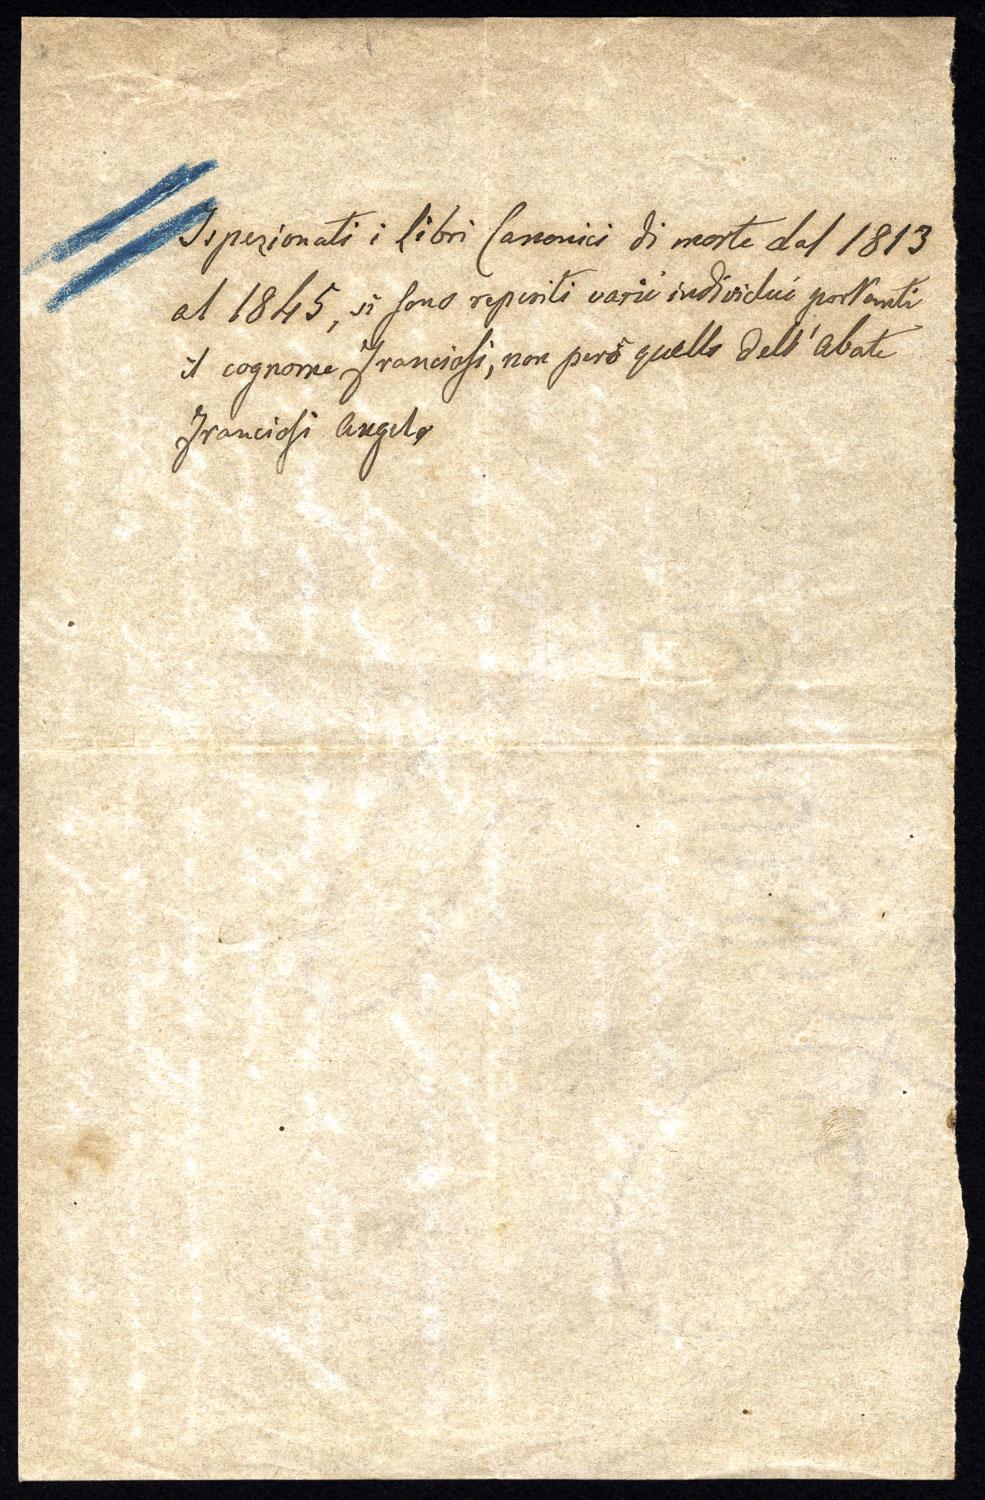 Ispezionati i libri Canonici di morte dal 1813
al 1845, si sono reperiti varii individui portanti
il cognome Franciosi, non però quello dell'Abate
Franciosi Angelo